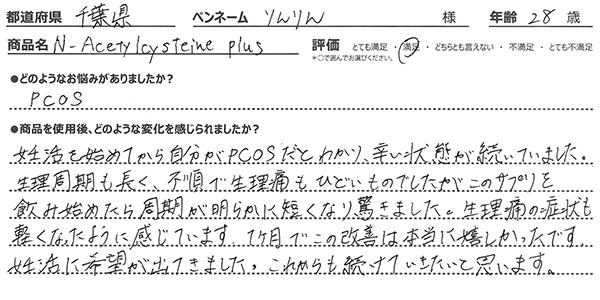 都道府県 千葉県 ペンネーム りんりん 様 年齢 28 歳
商品名 N-Acetylcysteine plus 評価 とても満足 ・ 満足 ・ どちらとも言えない ・ 不満足 ・ とても不満足
*○で囲んでお選びください。
●どのようなお悩みがありましたか?
PCOS
●商品を使用後、どのような変化を感じられましたか?
妊活を始めてから自分がPCOSだとわかり、辛い状態が続いていました。
生理周期も長く、不順で生理痛もひどいものでしたがこのサプリを
飲み始めたら周期が明らかに短くなり驚きました。生理痛の症状も
軽くなったように感じています。1ヶ月でこの改善は本当に嬉しかったです。
妊活に希望が出てきました。これからも続けていきたいと思います。